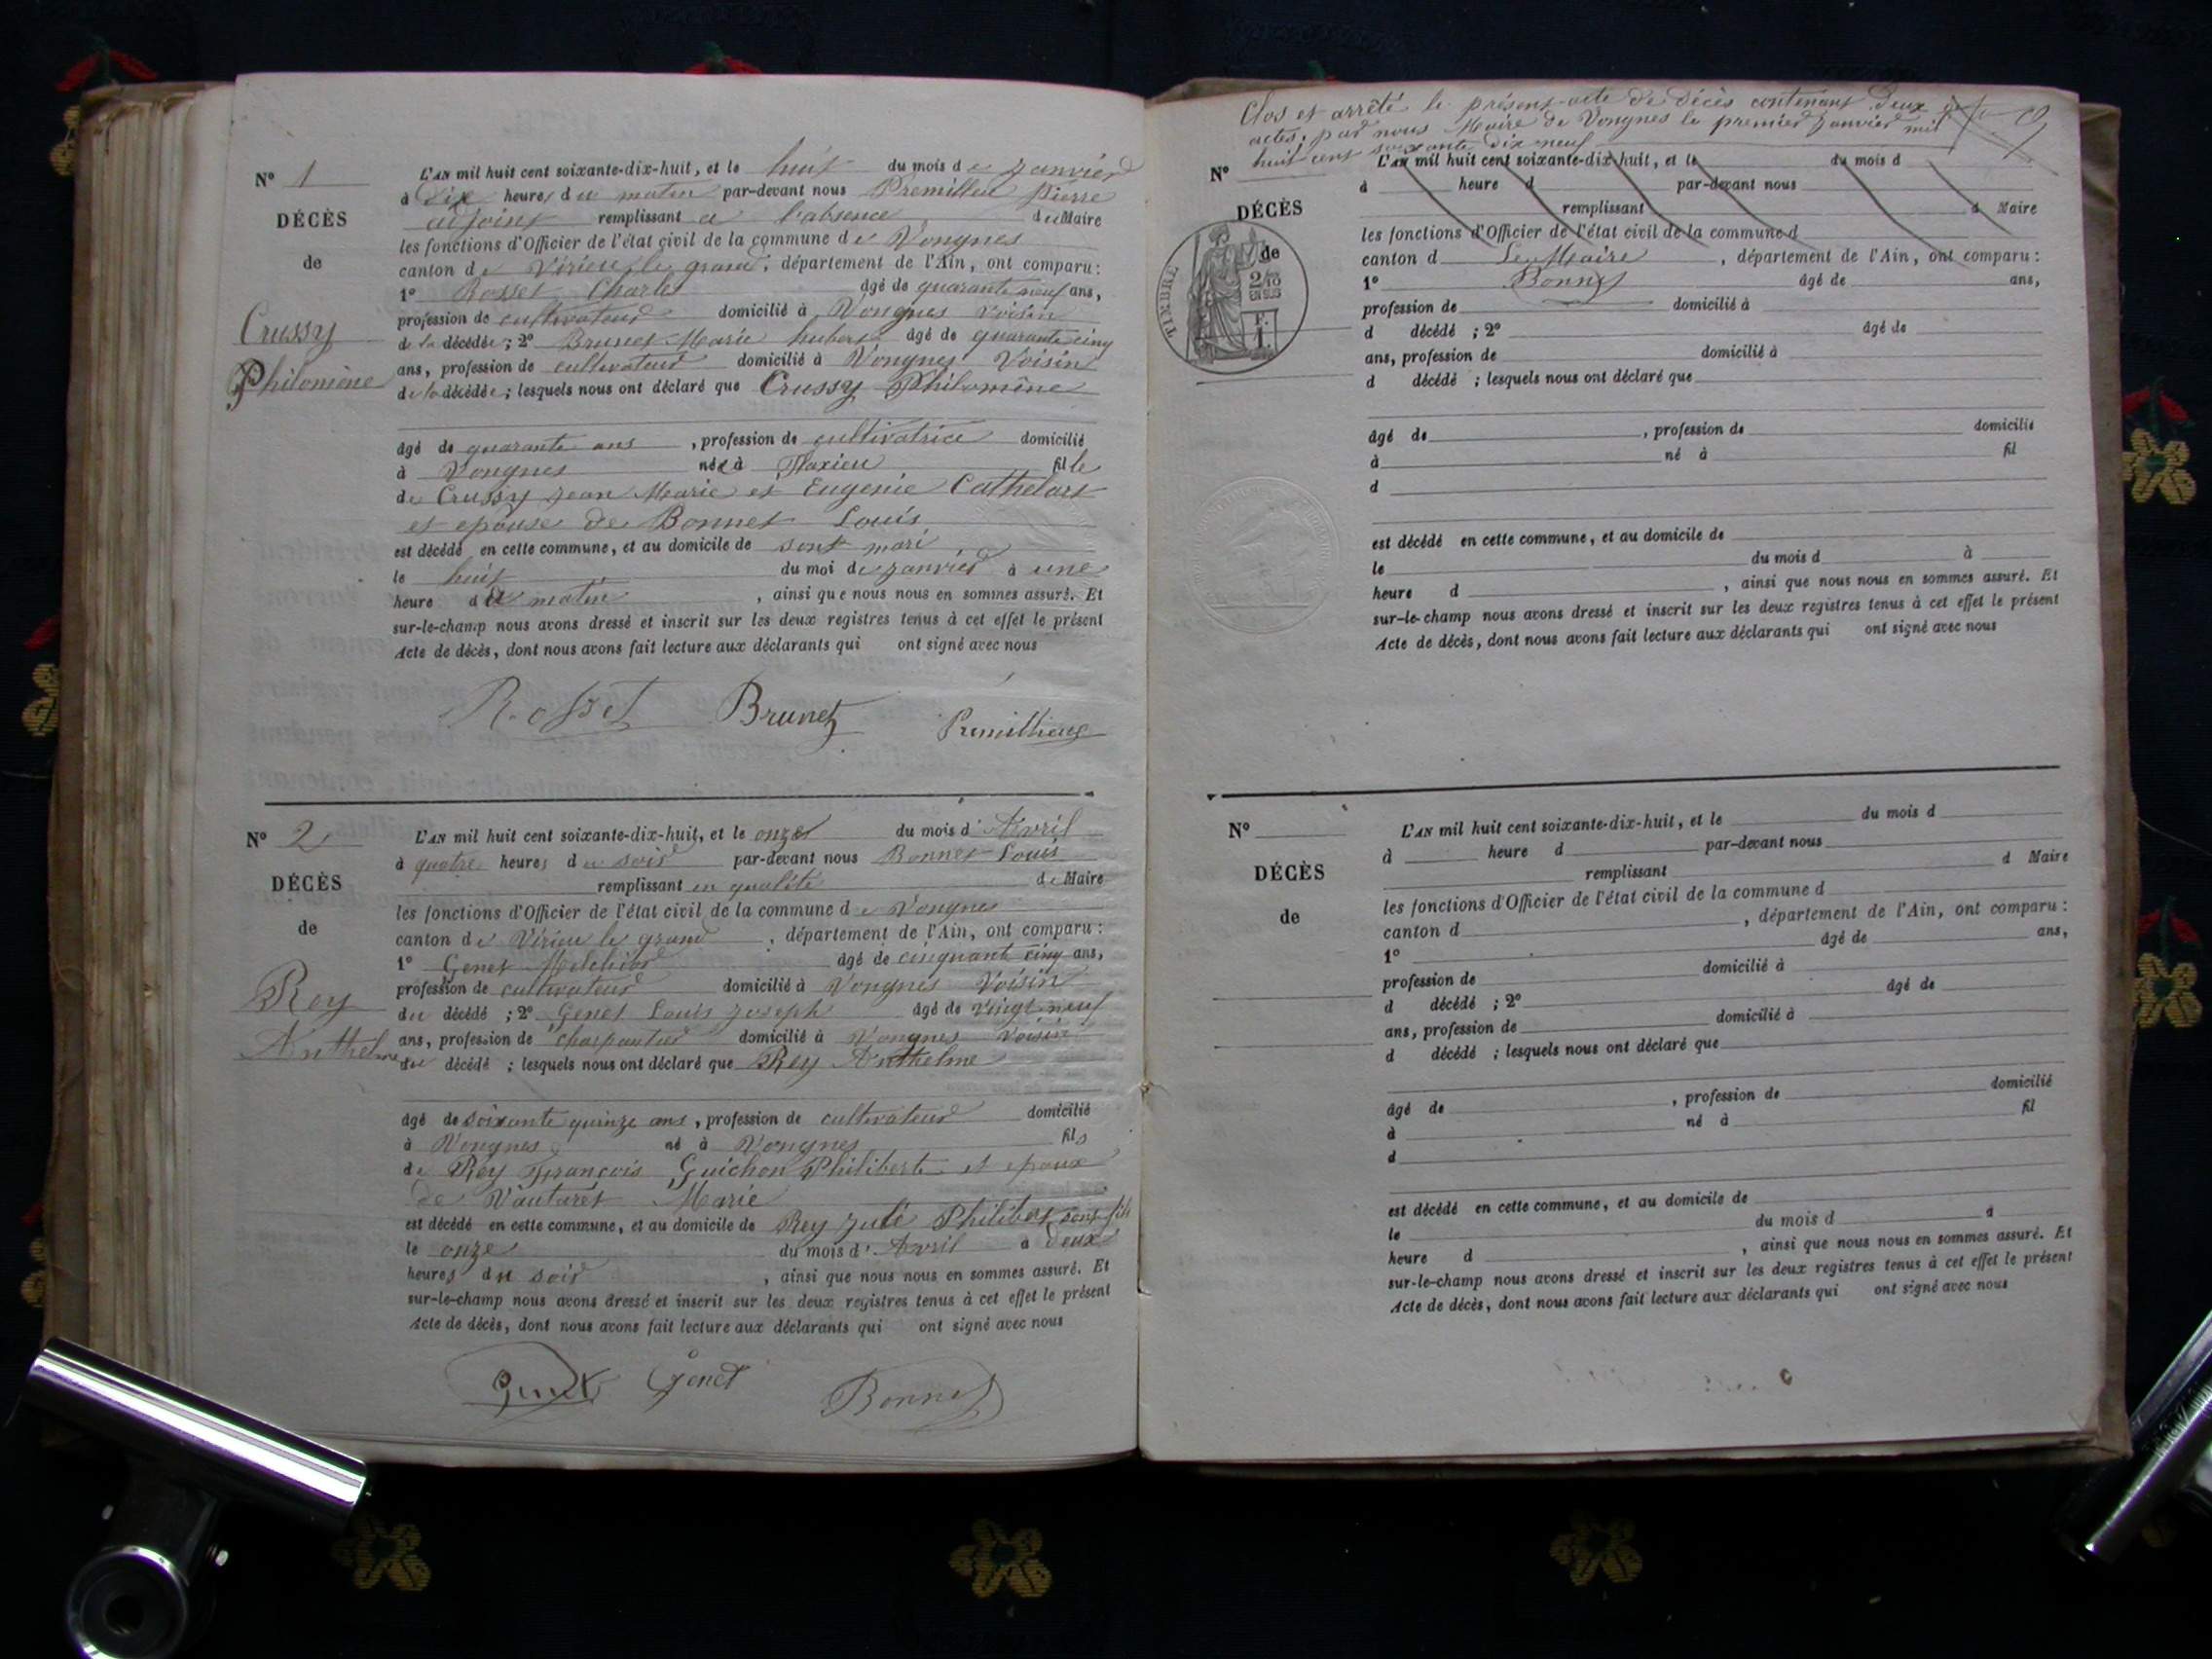 N° 1
DÉCÈS
de
Crussy
Philomène
L'AN mil huit cent soixante-dix-huit, et le huit du mois de Janvier
à Dix heures du matin par-devant nous Premillieu Pierre
adjoint remplissant en l'absence du Maire
les fonctions d'Officier de l'état civil de la commune de Vongnes
canton de Virieu le grand, département de l'Ain, ont comparu :
1° Rosset Charles âgé de quarante neuf ans,
profession de cultivateur domicilié à Vongnes Voisin
de la décédée ; 2° Brunet Marie hubert âgé de quarante cinq
ans, profession de cultivateur domicilié à Vongnes Voisin
de la décédée ; lesquels nous ont déclaré que Crussy Philomène
âgé de quarante ans , profession de cultivatrice domicilié
à Vongnes née à Flaxieu fille
de Crussy Jean Marie et Eugenie Cathelart
et epouse de Bonnet Louis
est décédé en cette commune, et au domicile de sont mari
le huit du moi de Janvier à une
heure du matin , ainsi que nous nous en sommes assuré. Et
sur-le-champ nous avons dressé et inscrit sur les deux registres tenus à cet effet le présent
Acte de décès, dont nous avons fait lecture aux déclarants qui ont signé avec nous
Rosset Brunet Premillieux
N° 2
DÉCÈS
de
Rey
Anthelme
L'AN mil huit cent soixante-dix-huit, et le onze du mois d' Avril
à quatre heures du soir par-devant nous Bonnet Louis
remplissant en qualité de Maire
les fonctions d'Officier de l'état civil de la commune de Vongnes
canton de Virieu le grand , département de l'Ain, ont comparu :
1° Genet Melchior âgé de cinquante cinq ans,
profession de cultivateur domicilié à Vongnes Voisin
du décédé ; 2° Genet Louis Joseph âgé de vingt neuf
ans, profession de charpentier domicilié à Vongnes Voisin
du décédé ; lesquels nous ont déclaré que Rey Anthelme
âgé de soixante quinze ans , profession de cultivateur domicilié
à Vongnes né à Vongnes fils
de Rey François Guichon Philiberte et epoux
de Vautaret Marie
est décédé en cette commune, et au domicile de Rey Philibert sont fils
le onze du mois d' Avril à deux
heures du soir , ainsi que nous nous en sommes assuré. Et
sur-le-champ nous avons dressé et inscrit sur les deux registres tenus à cet effet le présent
Acte de décès, dont nous avons fait lecture aux déclarants qui ont signé avec nous
Genet Genet Bonnet
Clos et arrêté le présent acte de Décès contenant Deux
actes, par nous Maire de Vongnes le premier Janvier mil
huit cent soixante dix neuf
N°
DÉCÈS
de
TIMBRE
2/10
EN SUS
1 F.
L'AN mil huit cent soixante-dix-huit, et le du mois d
à heure d par-devant nous
remplissant d Maire
les fonctions d'Officier de l'état civil de la commune d
canton d Le Maire , département de l'Ain, ont comparu :
1° Bonnet âgé de ans,
profession de domicilié à
d décédé ; 2° âgé de
ans, profession de domicilié à
d décédé ; lesquels nous ont déclaré que
âgé de , profession de domicilié
à né à fil
d
est décédé en cette commune, et au domicile de
le du mois d à
heure d , ainsi que nous nous en sommes assuré. Et
sur-le-champ nous avons dressé et inscrit sur les deux registres tenus à cet effet le présent
Acte de décès, dont nous avons fait lecture aux déclarants qui ont signé avec nous
N°
DÉCÈS
de
L'AN mil huit cent soixante-dix-huit, et le du mois d
à heure d par-devant nous
remplissant d Maire
les fonctions d'Officier de l'état civil de la commune d
canton d , département de l'Ain, ont comparu :
1° âgé de ans,
profession de domicilié à
d décédé ; 2° âgé de
ans, profession de domicilié à
d décédé ; lesquels nous ont déclaré que
âgé de , profession de domicilié
à né à fil
d
est décédé en cette commune, et au domicile de
le du mois d à
heure d , ainsi que nous nous en sommes assuré. Et
sur-le-champ nous avons dressé et inscrit sur les deux registres tenus à cet effet le présent
Acte de décès, dont nous avons fait lecture aux déclarants qui ont signé avec nous